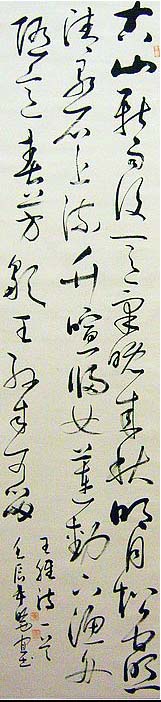 空山新雨後天氣晚來秋明月松間照
清泉石上流竹喧歸女蓮動下漁舟
随意春芳歇王孫自可留
王維詩一首
壬辰年書